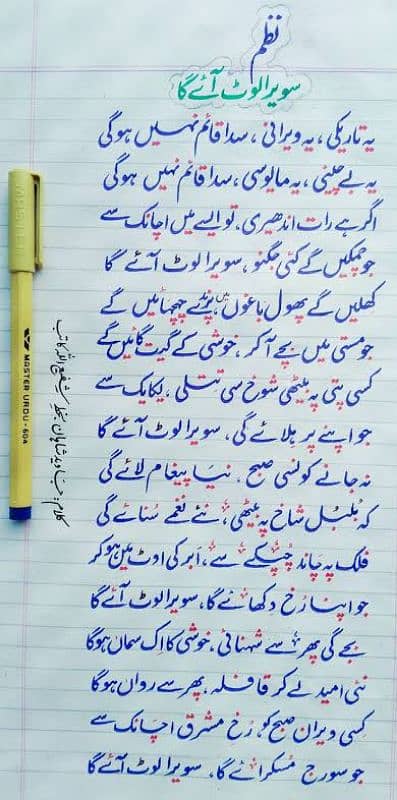 نظم
سویرا لوٹ آئے گا
یہ تاریکی، یہ ویرانی، سدا قائم نہیں ہوگی
یہ بے چینی، یہ مایوسی، سدا قائم نہیں ہوگی
اگر ہے رات اندھیری، تو ایسے میں اچانک سے
جو چمکیں گے کئی جگنو، سویرا لوٹ آئے گا
کھلیں گے پھول باغوں میں، پرندے چہچہائیں گے
جو مستی میں بچے آ کر، خوشی کے گیت گائیں گے
کسی پتی پہ بیٹھی شوخ سی تتلی، یکایک سے
جو اپنے پر ہلائے گی، سویرا لوٹ آئے گا
نہ جانے کونسی صبح، نیا پیغام لائے گی
کہ بُلبُل شاخ پہ بیٹھی، نئے نغمے سُنائے گی
فلک پہ چاند چُپکے سے، اَبر کی اوٹ میں ہو کر
جو اپنا رُخ دکھائے گا، سویرا لوٹ آئے گا
بجے گی پھر سے شہنائی، خوشی کا اِک سماں ہوگا
نئی امید لے کر قافلہ، پھر سے رواں ہوگا
کِسی ویران صبح کو، رُخِ مشرق اچانک سے
جو سورج مُسکرائے گا، سویرا لوٹ آئے گا
کلام: جاوید شاہان
شفیع اللہ کاتب
MASTER URDU-604